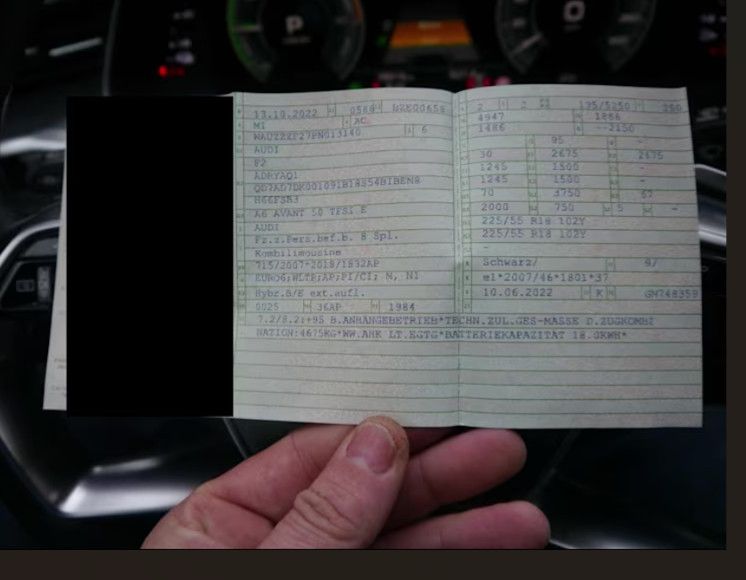 P
13.10.2022 0588 BRE00659
M1 AC
6
AUDI
F2
ADRYAQ1
A6 AVANT 50 TFSI E
AUDI
Fz.z.Pers.bef.b. 8 Spl.
Kombilimousine
715/2007*2018/1832AP
EURO6;WLTP;AP;PI/CI; N, N1
Hybr.B/E ext.aufl.
0025 36AP 1984
2 2 195/5250 250
4947 1886
1486 --2150
95 -
30 2675 2675
1245 1500 -
1245 1500 -
70 3750 67
2000 750 5 -
225/55 R18 102Y
225/55 R18 102Y
-
Schwarz/ 9/
e1*2007/46*1801*37
10.06.2022 K GN748359
7.2/8.2:+95 B.ANHÄNGEBETRIEB*TECHN.ZUL.GES-MASSE D.ZUGKOMBI
NATION:4675KG*WW.AHK LT.EGTG*BATTERIEKAPAZITÄT 18.0KWH*